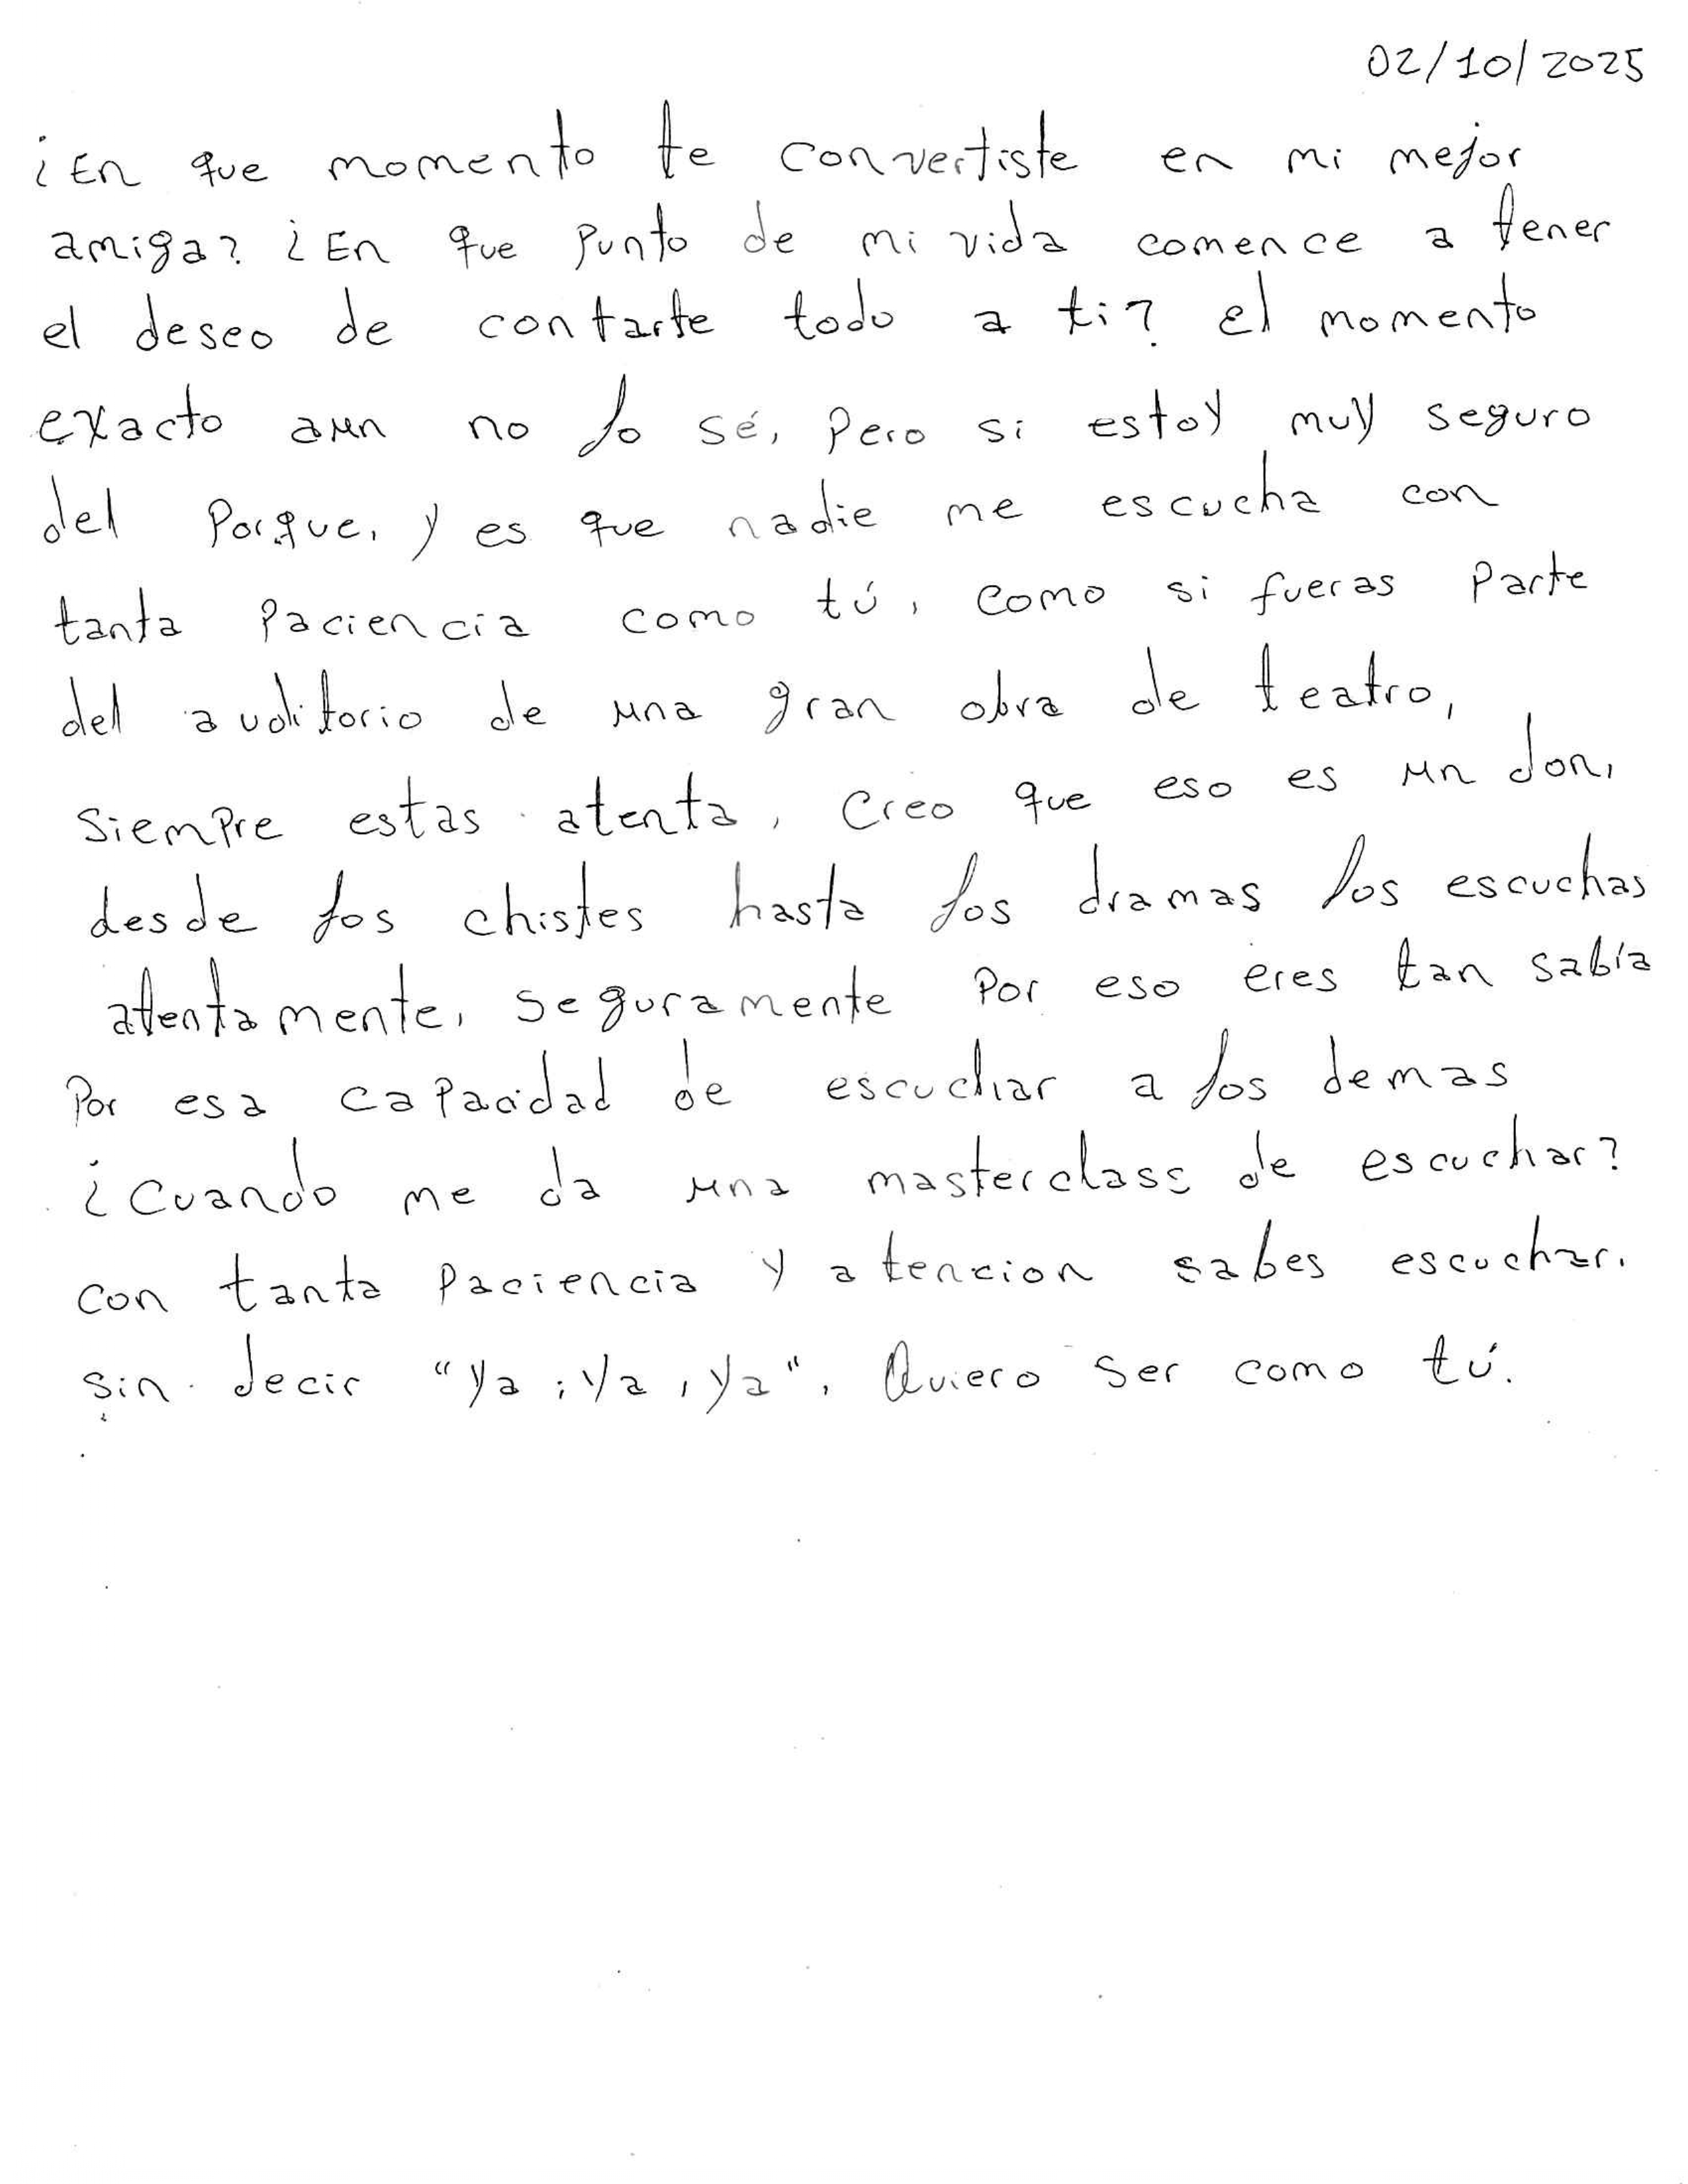 02/10/2025
¿En que momento te convertiste en mi mejor
amiga? ¿En que punto de mi vida comence a tener
el deseo de contarte todo a ti? el momento
exacto aun no lo sé, pero si estoy muy seguro
del porque, y es que nadie me escucha con
tanta paciencia como tú, como si fueras parte
del auditorio de una gran obra de teatro,
siempre estas atenta, creo que eso es un don,
desde los chistes hasta los dramas los escuchas
atentamente, seguramente por eso eres tan sabía
por esa capacidad de escuchar a los demas
¿Cuando me da una masterclass de escuchar?
con tanta paciencia y atencion sabes escuchar.
sin decir "ya, ya, ya", Quiero ser como tú.